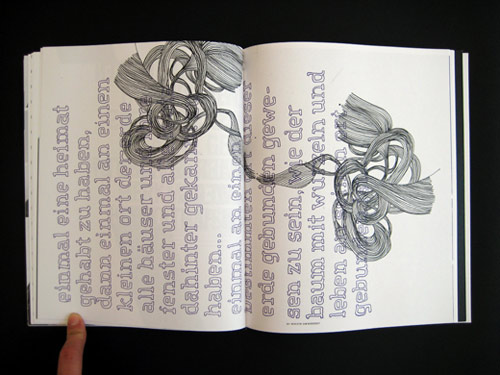 einmal eine heimat
gehabt zu haben,
dann einmal an einen
kleinen ort der erde
alle häuser
fenster und
dahinter
haben...
einmal an einen
bestimmten dieser
erde gebunden gewe-
sen zu sein, wie der
baum mit wurzeln und
leben